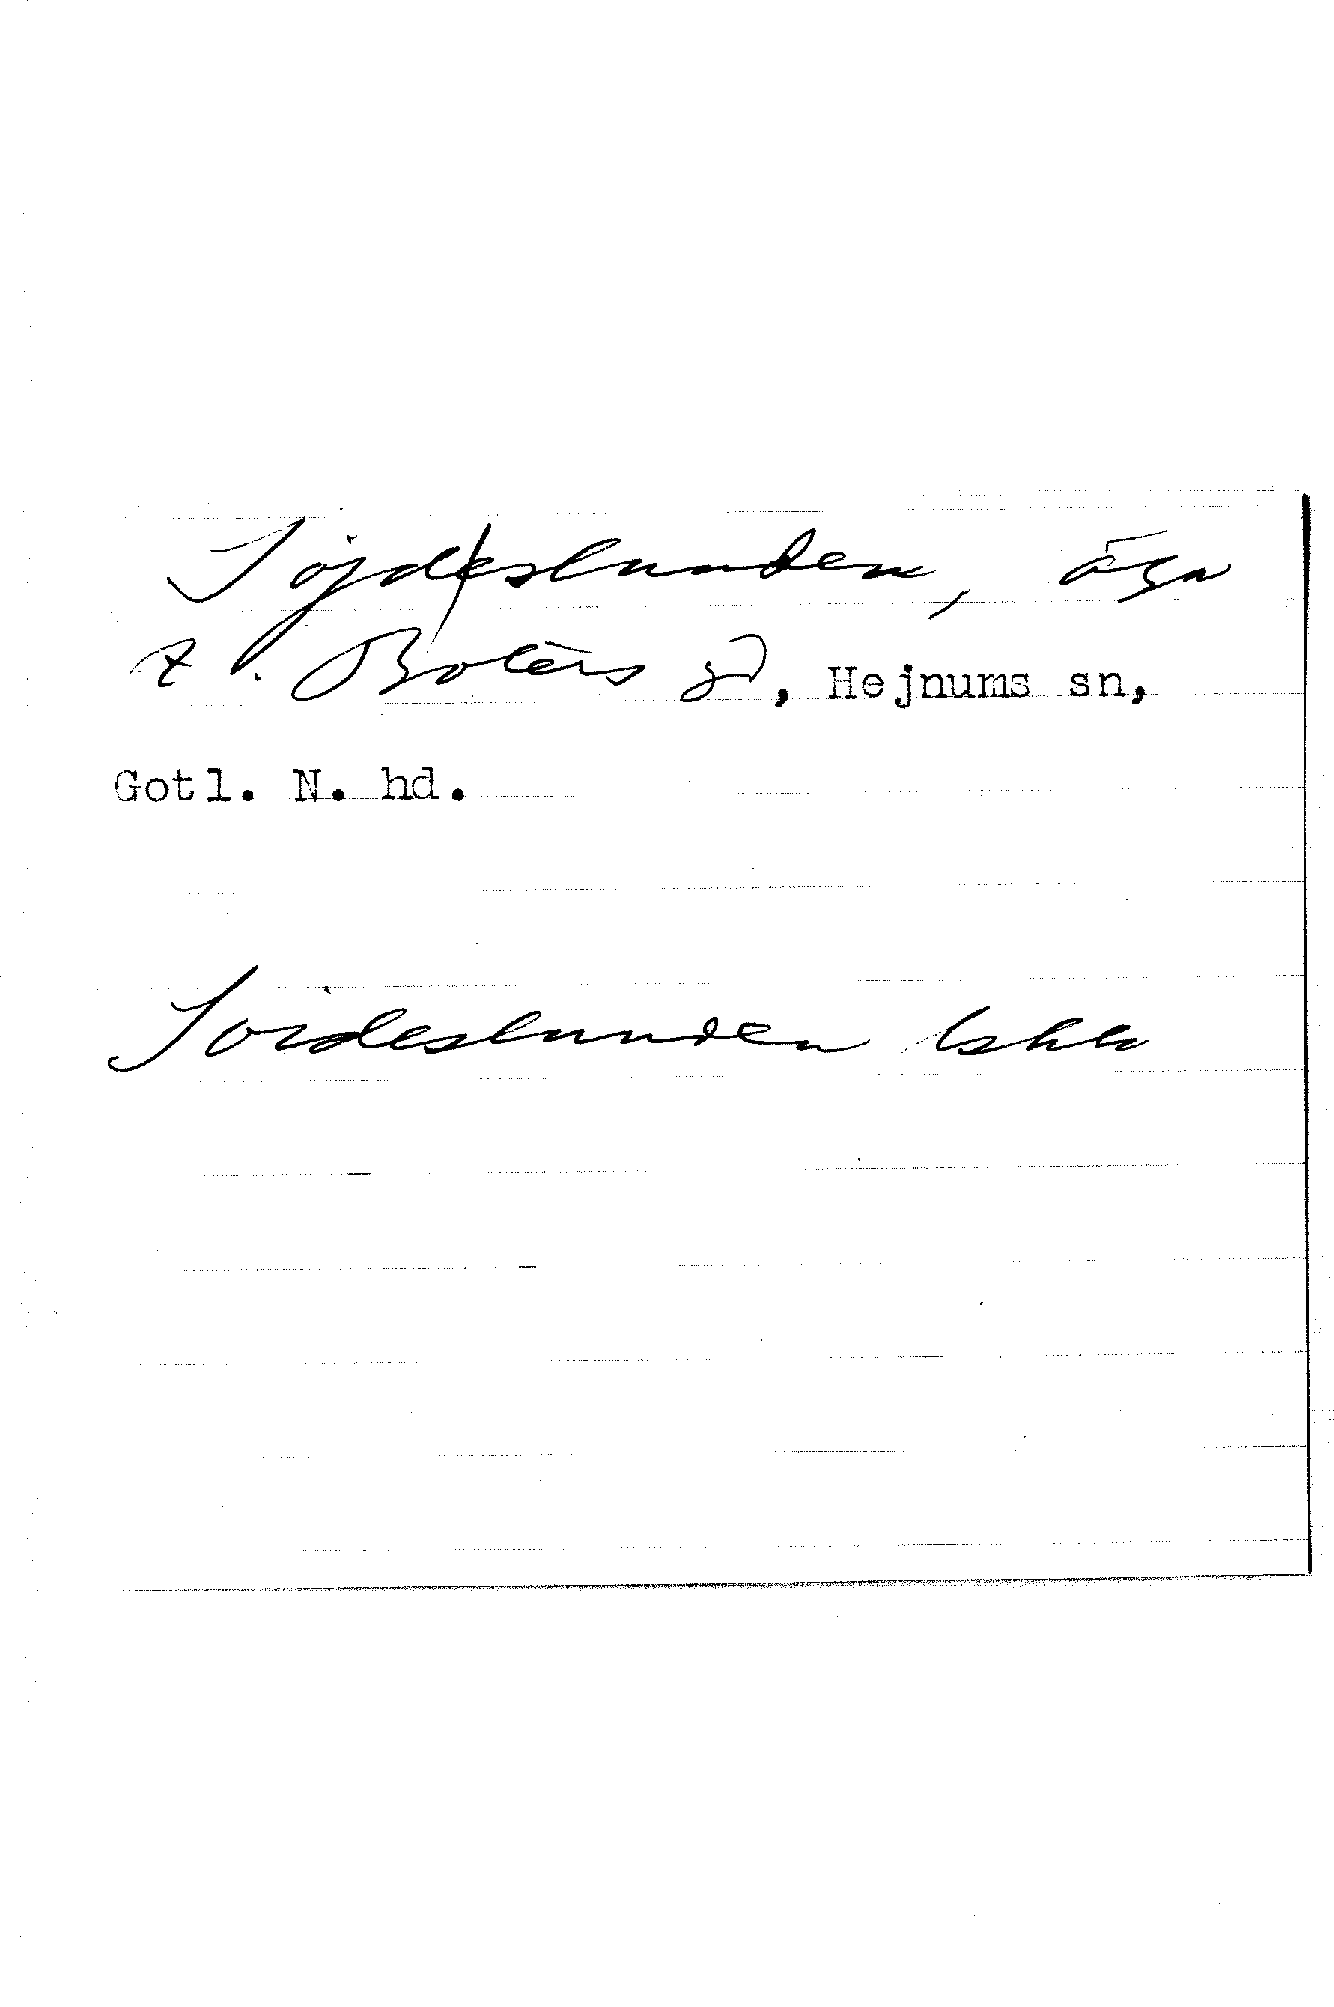 Sojdeslunden, äga
t. Boters gd, Hejnums sn,
Gotl. N. hd.
Soideslunden